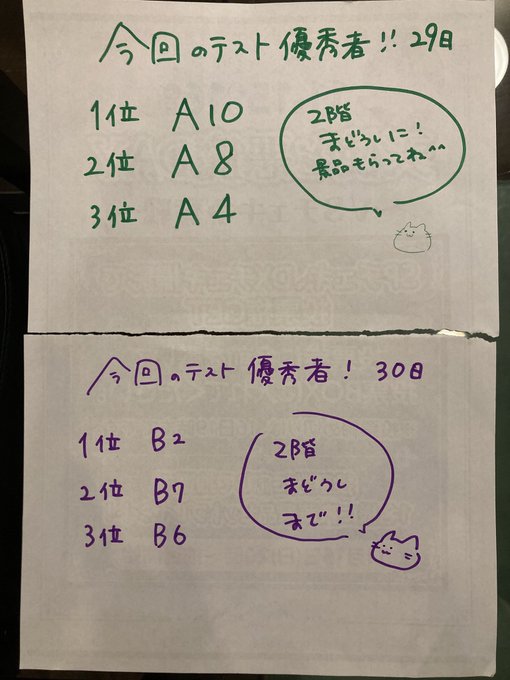 今回のテスト優秀者!! 29日
1位 A10
2位 A8
3位 A4
2階
まどうしに!
景品もらってね^^
今回のテスト優秀者! 30日
1位 B2
2位 B7
3位 B6
2階
まどうし
まで!!